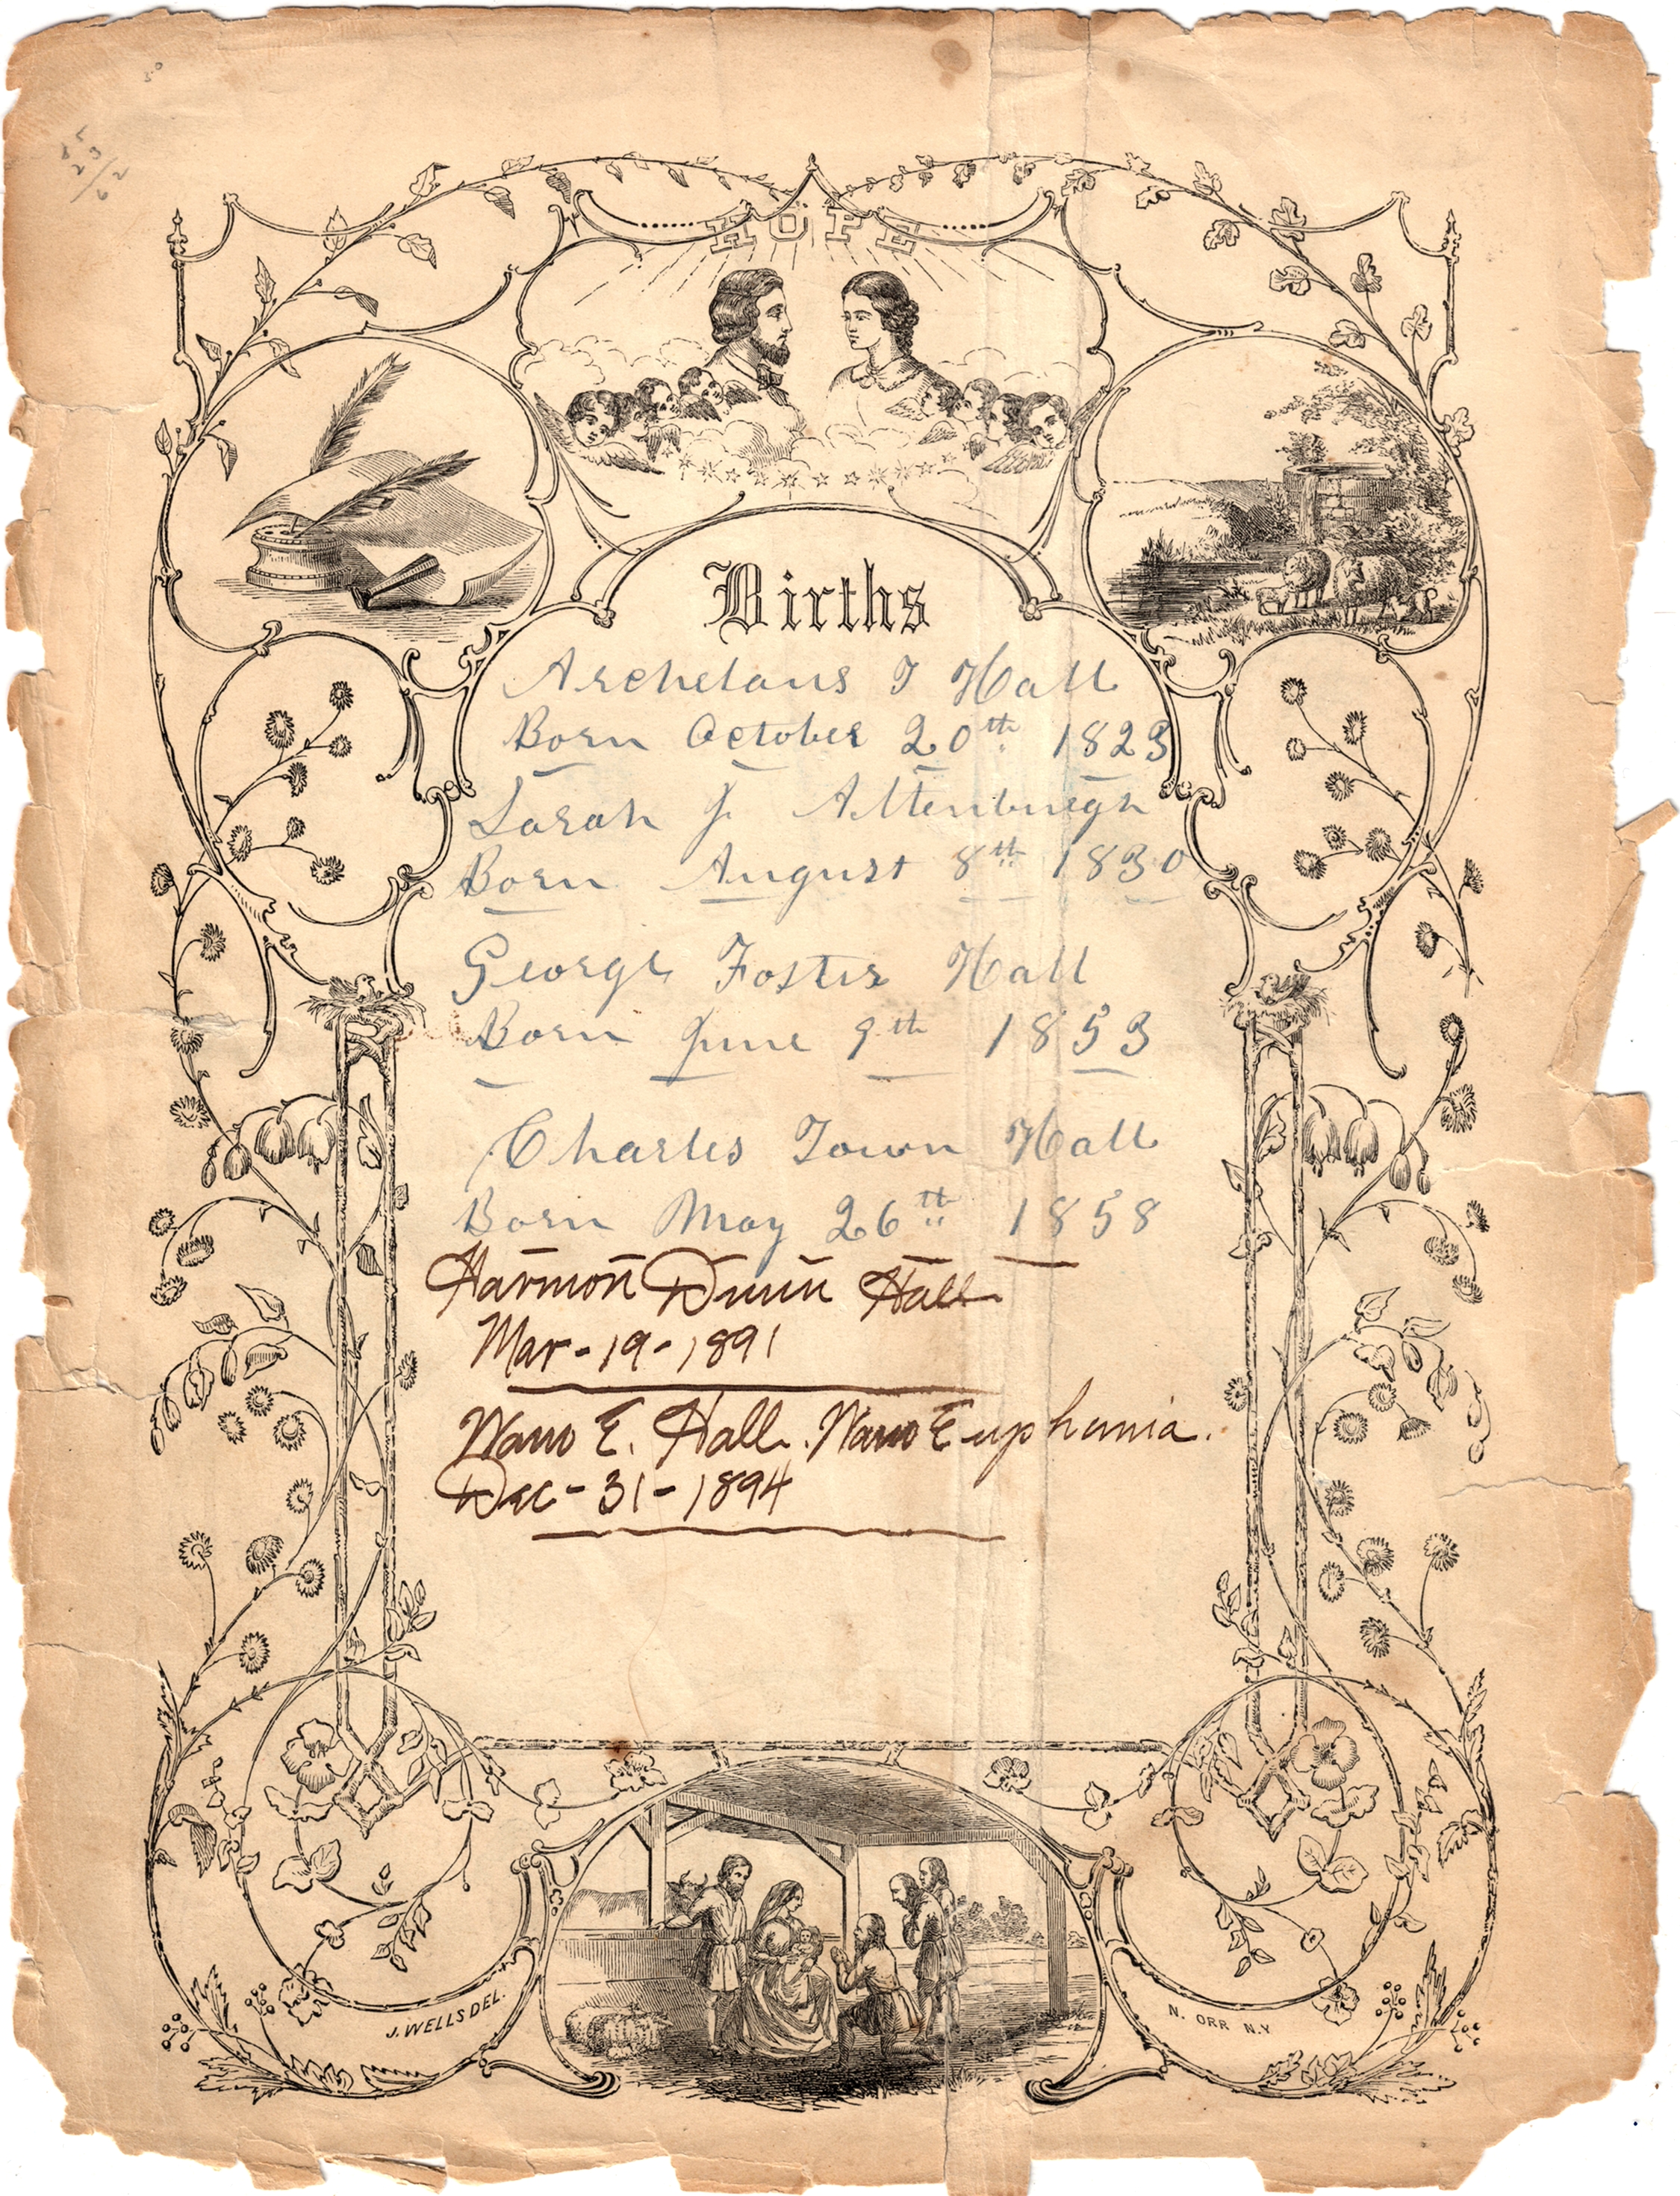 HOPE
Births
Archelaus T Hall
Born October 20th 1823
Sarah J. Attenburgh
Born August 8th 1830
George Foster Hall
Born June 9th 1853
Charles Town Hall
Born May 26th 1858
Harmon Dunn Hall
Mar-19-1891
E. Hall. Euphemia.
Dec-31-1894
J. WELLS DEL.
N. ORR N.Y